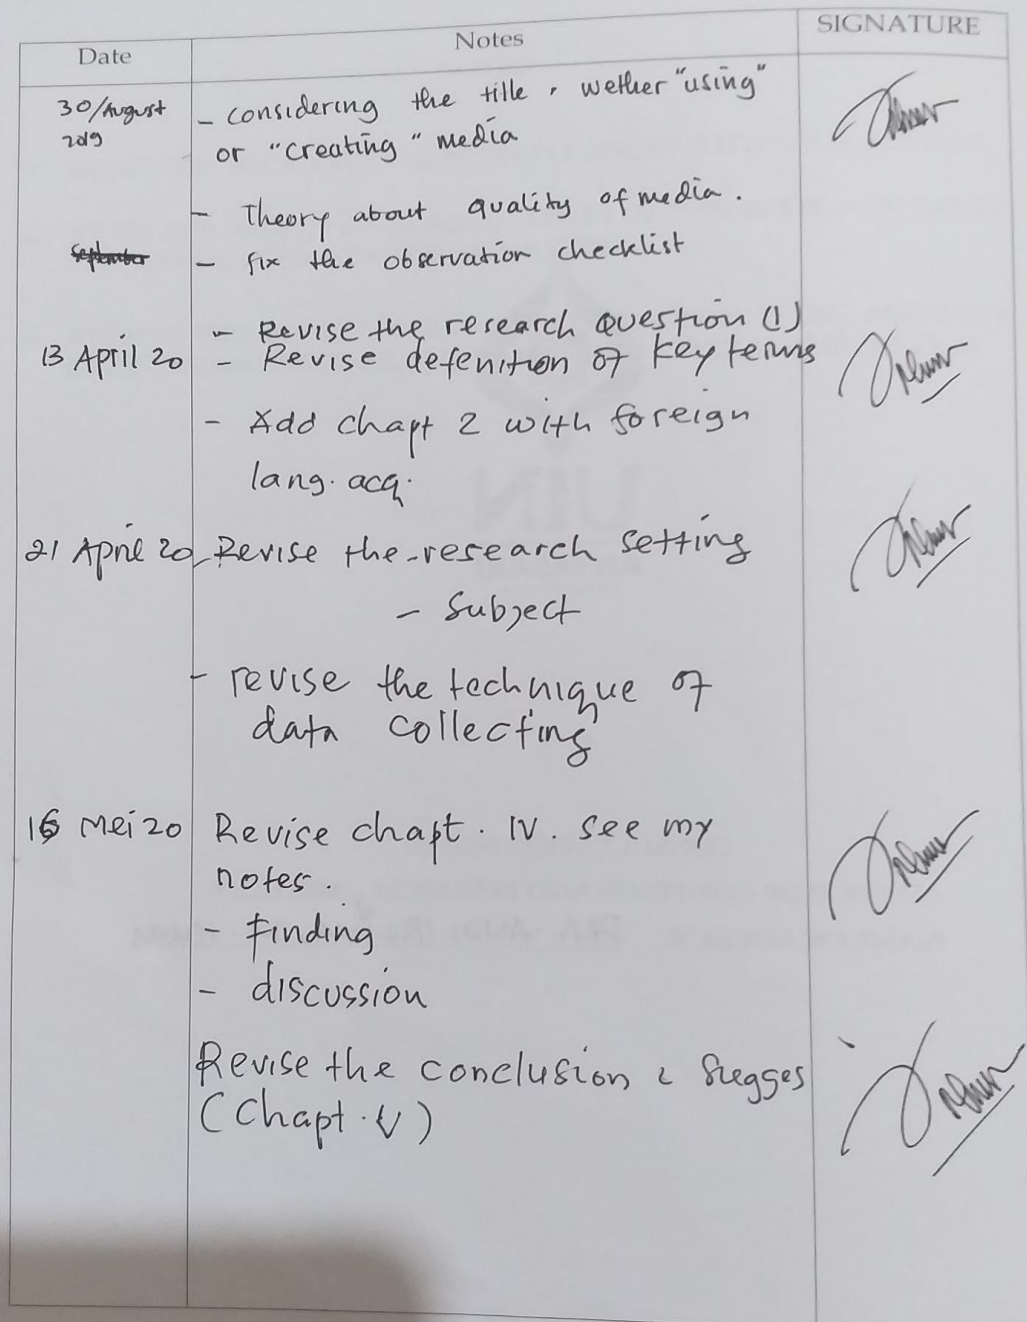 Date Notes SIGNATURE
30/August - considering the title, wether "using"
2019 or "creating" media
- Theory about quality of media.
september - fix the observation checklist
- Revise the research Question (1)
13 April 20 - Revise defenition of key terms
- Add chapt 2 with foreign
lang. acq.
21 April 20 - Revise the research setting
- Subject
- revise the technique of
data collecting
16 Mei 20 Revise chapt. IV. see my
notes.
- Finding
- discussion
Revise the conclusion & Sugges
(Chapt. V)